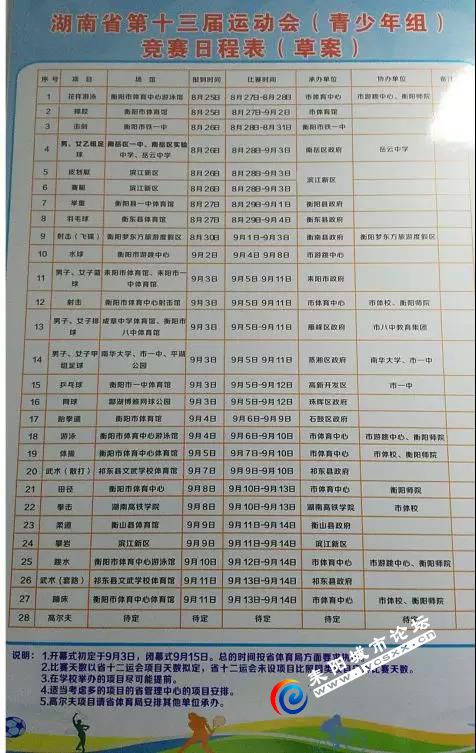 湖南省第十三届运动会（青少年组）
竞赛日程表（草案）
序号 项目 场馆 报到时间 比赛时间 承办单位 协办单位 备注
1 花样游泳 衡阳市体育中心游泳馆 8月25日 8月27日-8月28日 市体育中心 市游跳中心、衡阳师院
2 棒胶 衡阳市体育馆 8月25日 8月27日-9月2日 市体育馆
3 击剑 衡阳市铁一中 8月26日 8月28日-8月31日 衡阳市铁一中
4 男、女乙组足球 南岳区一中、南岳区实验中学、岳云中学 8月26日 8月28日-9月3日 南岳区政府 岳云中学
5 皮划艇 滨江新区 8月26日 8月28日-9月3日 滨江新区
6 赛艇 滨江新区 8月26日 8月28日-9月3日
7 举重 衡阳县一中体育馆 8月27日 8月29日-9月1日 衡阳县政府
8 羽毛球 衡东县体育馆 8月27日 8月29日-9月4日 衡东县政府
9 射击（飞碟） 衡阳梦东方旅游度假区 8月30日 9月1日-9月3日 衡南县政府 衡阳梦东方旅游度假区
10 水球 衡阳市游跳中心 9月2日 9月4日-9月8日 市游跳中心
11 男子、女子篮球 耒阳市体育馆、耒阳市一中体育馆 9月3日 9月5日-9月11日 耒阳市政府
12 射击 衡阳市体育中心射击馆 9月3日 9月5日-9月11日 市体育中心 市体校、衡阳师院
13 男子、女子排球 成章中学体育馆、衡阳市八中体育馆 9月3日 9月5日-9月11日 雁峰区政府 市八中教育集团
14 男子、女子甲组足球 南华大学、市一中、平湖公园 9月3日 9月5日-9月11日 蒸湘区政府 南华大学、市一中
15 乒乓球 衡阳市一中体育馆 9月3日 9月5日-9月12日 高新开发区 市一中
16 网球 酃湖博雅网球公园 9月3日 9月5日-9月12日 珠晖区政府
17 跆拳道 衡阳市体育馆 9月4日 9月6日-9月9日 石鼓区政府
18 游泳 衡阳市体育中心游泳馆 9月4日 9月6日-9月10日 市体育中心 市游跳中心、衡阳师院
19 体操 衡阳市体育中心体育馆 9月5日 9月7日-9月10日 市体育中心 市体校、衡阳师院
20 武术（散打） 祁东县文武学校体育馆 9月7日 9月7日-9月9日 祁东县政府
21 田径 衡阳市体育中心 9月8日 9月10日-9月13日 市体育中心 衡阳师院
22 拳击 湖南高铁学院 9月8日 9月10日-9月13日 湖南高铁学院 市体校
23 柔道 衡山县体育馆 9月9日 9月11日-9月14日 衡山县政府
24 攀岩 滨江新区 9月9日 9月11日-9月14日 滨江新区
25 跳水 衡阳市体育中心游泳馆 9月10日 9月12日-9月14日 市体育中心 市游跳中心、衡阳师院
26 武术（套路） 祁东县文武学校体育馆 9月11日 9月13日-9月14日 祁东县政府
27 蹦床 衡阳市体育中心体育馆 9月11日 9月13日-9月14日 市体育中心 市体校、衡阳师院
28 高尔夫 待定 待定 待定 待定
说明：1.开幕式初定于9月3日，闭幕式9月15日。总的时间按省体育局方面要求
2.比赛天数以省十二运会项目天数拟定，省十二运会未设项目比照 比赛天数。
3.在学校举办的项目尽可能提前。
4.适当考虑多的项目的省管理中心的项目安排。
5.高尔夫项目请省体育局安排其他单位承办。
耒阳城市论坛